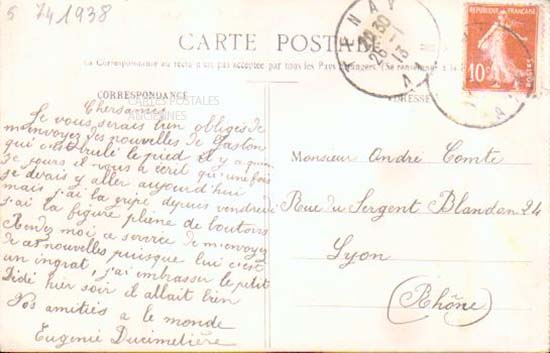 5 741938
CARTE POSTALE
La Correspondance au recto n'est pas acceptée par tous les Pays étrangers (Se renseigner à la
TENAY
12 30
26 -1
13
RÉPUBLIQUE FRANÇAISE
10c
POSTES
CORRESPONDANCE
ADRESSE
CARTES POSTALES
ANCIENNES
Chersamis
Je vous serais bien obligés de
m'envoyez des nouvelles de Gaston
qui c'est brulé le pied il y a quin
ze jours il nous a écrit qu'une fois
je devais y aller aujourd'hui
mais j'ai la gripe depuis vendredi
j'ai la figure pleine de boutons
Rendez moi ce service de m'envoyez
de ces nouvelles puisque lui c'est
un ingrat, j'ai imbrasser le petit
Didé hier soir il allait bien
Vos amitiés a le monde
Eugenie Ducimetière
Monsieur André Comte
Rue du Sergent Blandan 24
Lyon
(Rhône)